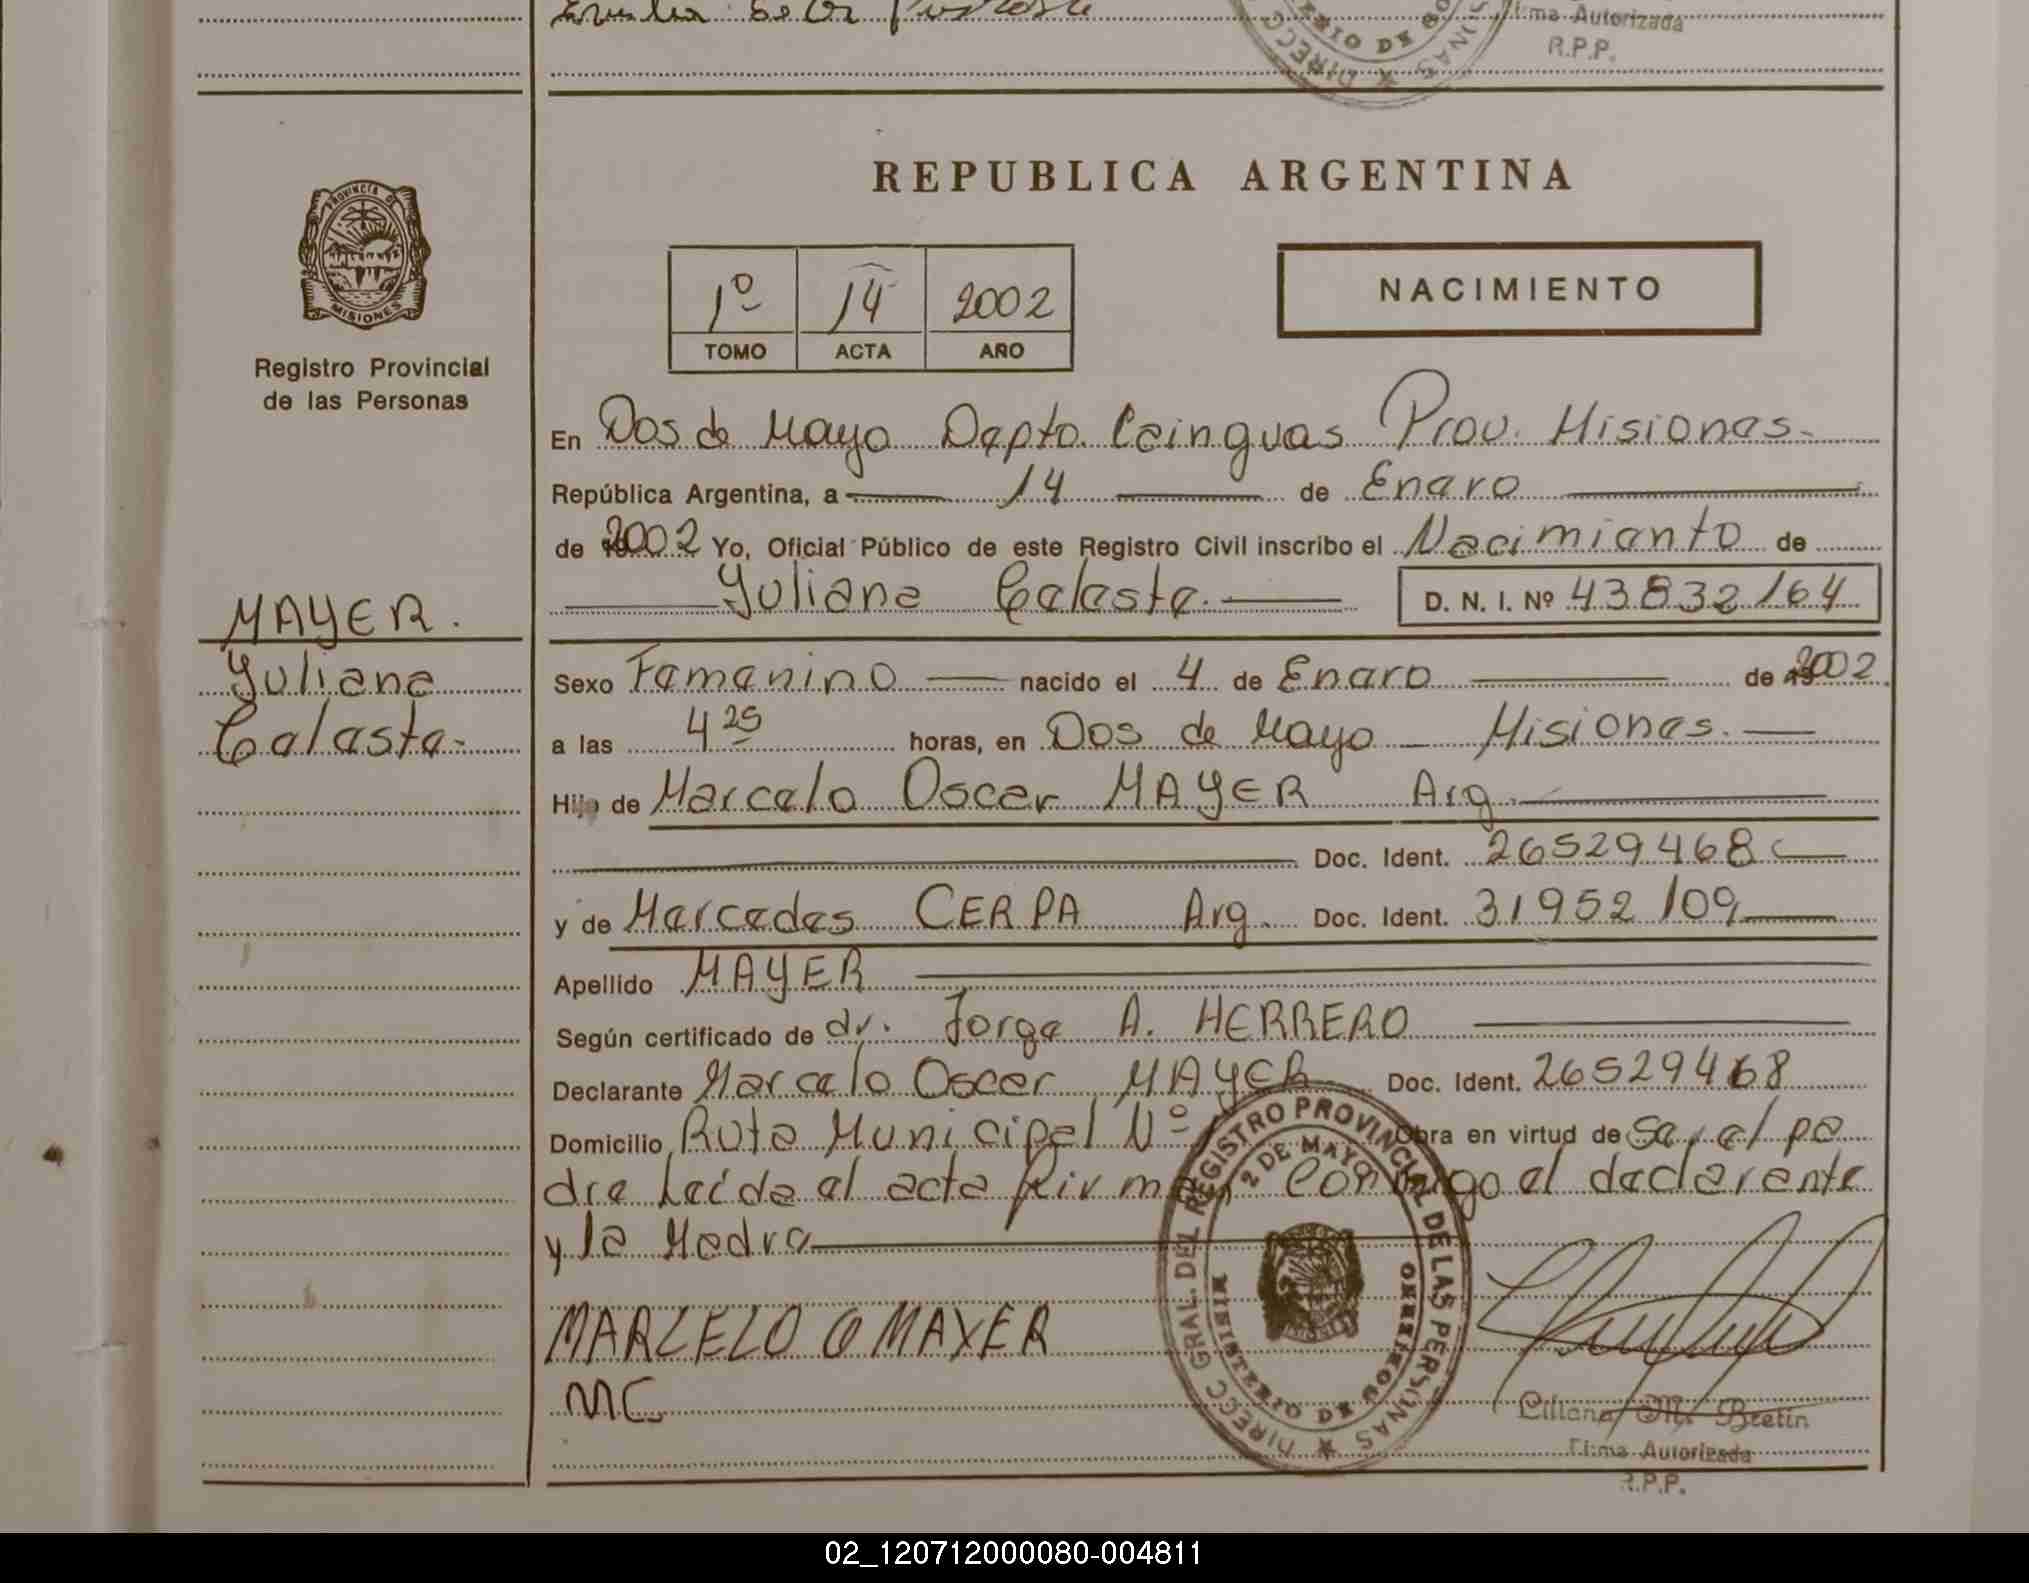 Firma Autorizada
R.P.P.
PROVINCIA DE
MISIONES
Registro Provincial
de las Personas
REPUBLICA ARGENTINA
1º 14 2002
TOMO ACTA AÑO
NACIMIENTO
En Dos de Mayo Depto. Cainguas Prov. Misiones.
República Argentina, a 14 de Enero
de 2002 Yo, Oficial Público de este Registro Civil inscribo el Nacimiento de
Yuliana Celeste. D. N. I. Nº 43832164
MAYER.
Yuliana
Celeste
Sexo Femenino nacido el 4 de Enero de 2002
a las 4 25 horas, en Dos de Mayo Misiones.
Hija de Marcelo Oscar MAYER Arg.
Doc. Ident. 26529468
y de Mercedes CERPA Arg. Doc. Ident. 31952109
Apellido MAYER
Según certificado de dr. Jorge A. HERRERO
Declarante Marcelo Oscar MAYER Doc. Ident. 26529468
Domicilio Ruta Municipal Nº Obra en virtud de ser el pa
dre Leída el acta firman conmigo el declarante
y la Madre
MARCELO O MAYER
MC
DIRECC GRAL. DEL REGISTRO PROVINCIAL DE LAS PERSONAS
2 DE MAYO
MINISTERIO DE GOBIERNO
Liliana M. Bretin
Firma Autorizada
R.P.P.
02_120712000080-004811